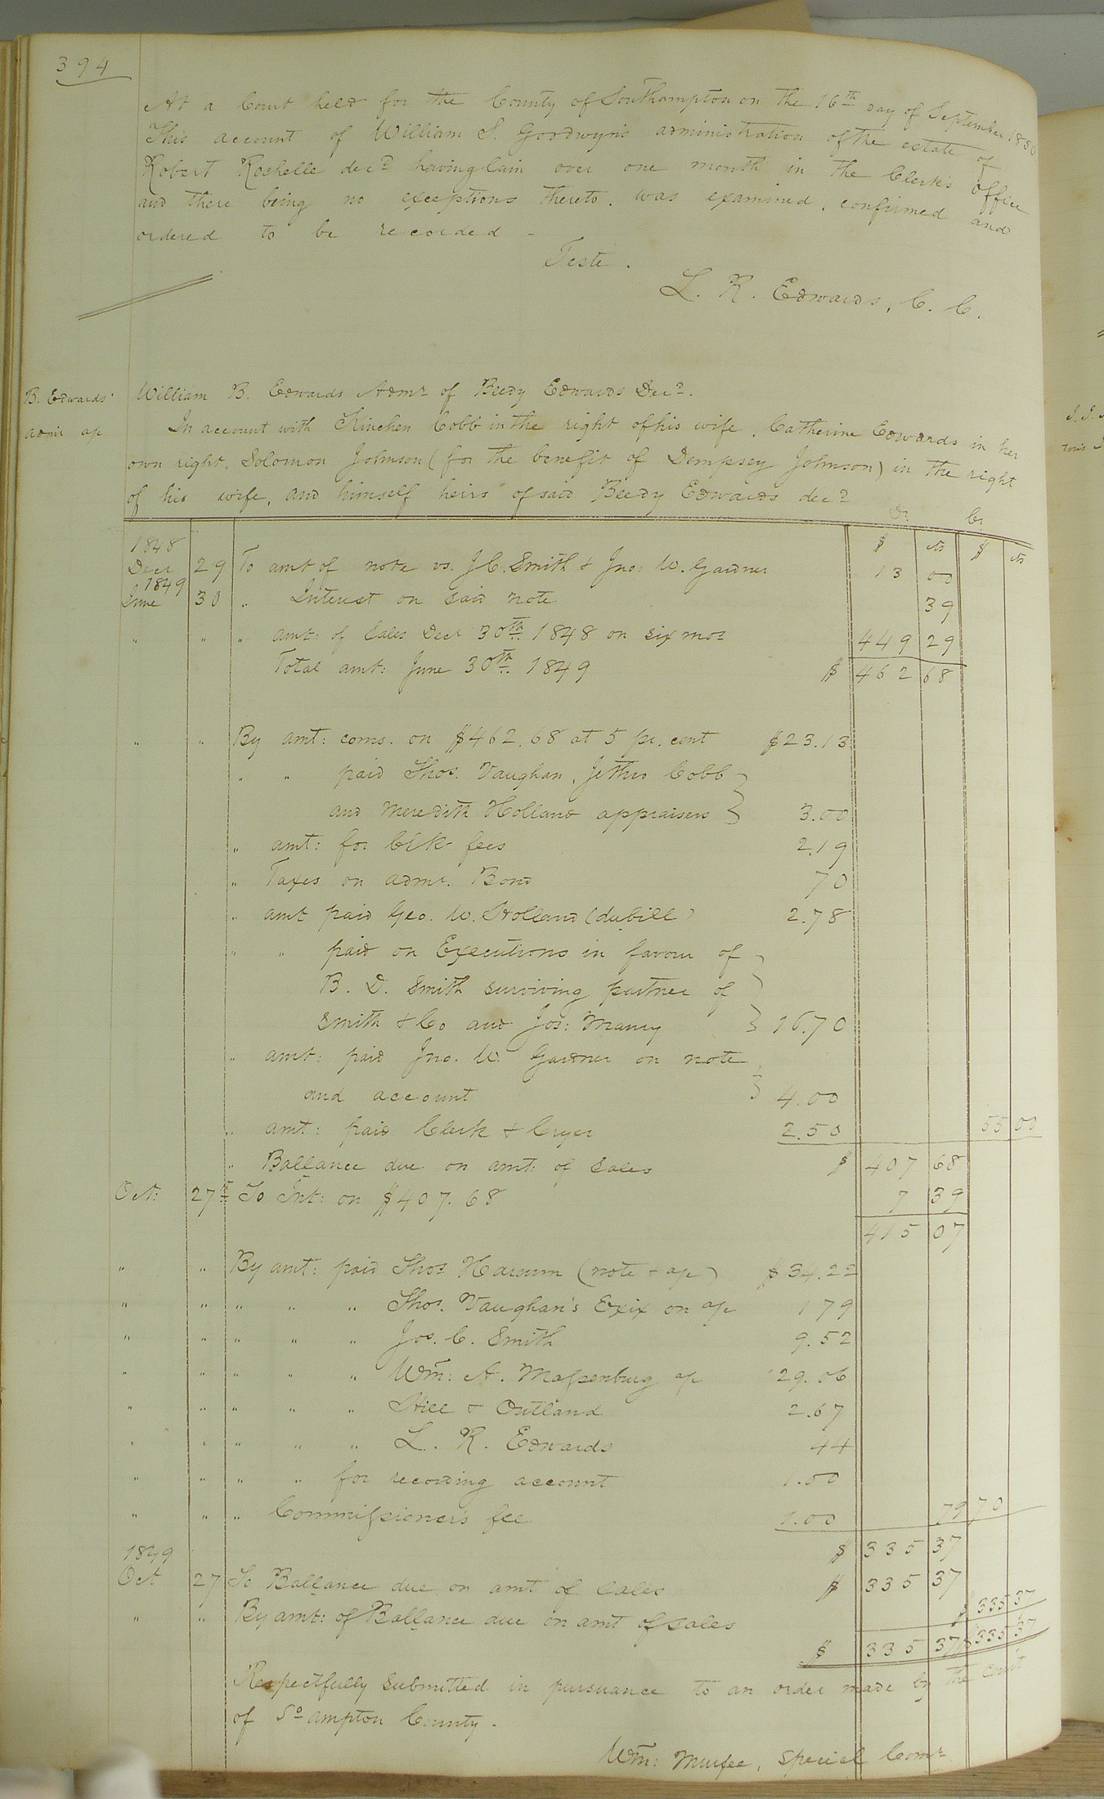 394
At a Court held for the County of Southampton on the 16th day of September 1850
This account of William S. Goodwyn's administration of the estate of
Robert Rochelle decd having lain over one month in the Clerk's office
and there being no exceptions thereto, was examined, confirmed and
ordered to be recorded -
Teste.
L. R. Edwards, C. C.
B. Edwards'
Admr ap
William B. Edwards Admr of Beedy Edwards Decd.
In account with Kinchen Cobb in the right of his wife, Catherine Edwards in her
own right, Solomon Johnson (for the benefit of Dempsey Johnson) in the right
of his wife, and himself heirs of said Beedy Edwards decd
Dr Cr
1848 $ cts $ cts
Decr 29 To amt of note vs. J. C. Smith & Jno: W. Gardner 13 00
1849
June 30 " Interest on said note 39
" " " amt: of Sales Decr 30th 1848 on six mos 449 29
Total amt: June 30th 1849 $ 462 68
" " By amt: coms. on $462.68 at 5 pr. cent $23.13
" " paid Thos. Vaughan, Jethro Cobb
and Meredith Holland appraisers 3.00
" amt: for Clk fees 2.19
" Taxes on admr. Bond 70
" amt paid Geo. W. Holland (dubill) 2.78
" " paid on Executions in favour of
B. D. Smith surviving partner of
Smith & Co and Jos: Maney 16.70
" amt: paid Jno. W. Gardner on note
and account 4.00
" amt: paid Clerk & Cryer 2.50 55 00
" Ballance due on amt: of Sales $ 407 68
Oct: 27th To Int: on $407.68 7 39
415 07
" " By amt: paid Thos Harum (note & ap) $34.22
" " " " " Thos. Vaughan's Exix on ap 1 79
" " " " " Jos. C. Smith 9.52
" " " " " Wm: A. Massenburg ap 29.06
" " " " " Hill & Outland 2.67
" " " " " L. R. Edwards 44
" " " " for recording account 1.50
" " " Commissioner's fee 1.00 79 70
1849 $ 335 37
Oct 27 To Ballance due on amt of Sales $ 335 37
" " By amt: of Ballance due on amt of sales $ 335 37
$ 335 37 $ 335 37
Respectfully submitted in pursuance to an order made by the Court
of So ampton County.
Wm: Murfee, Special Comr